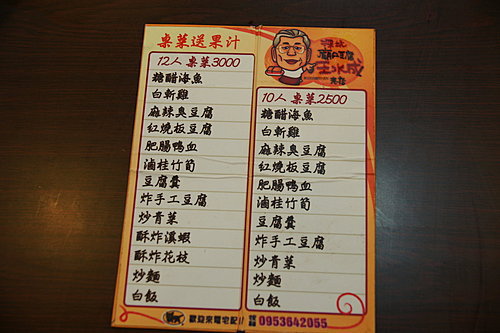 桌菜送果汁
12人 桌菜3000
糖醋海魚
白斬雞
麻辣臭豆腐
紅燒板豆腐
肥腸鴨血
滷桂竹筍
豆腐羹
炸手工豆腐
炒青菜
酥炸溪蝦
酥炸花枝
炒麵
白飯
深坑
廟口豆腐
王水成
老店
10人 桌菜2500
糖醋海魚
白斬雞
麻辣臭豆腐
紅燒板豆腐
肥腸鴨血
滷桂竹筍
豆腐羹
炸手工豆腐
炒青菜
炒麵
白飯
歡迎來電宅配!! 0953642055